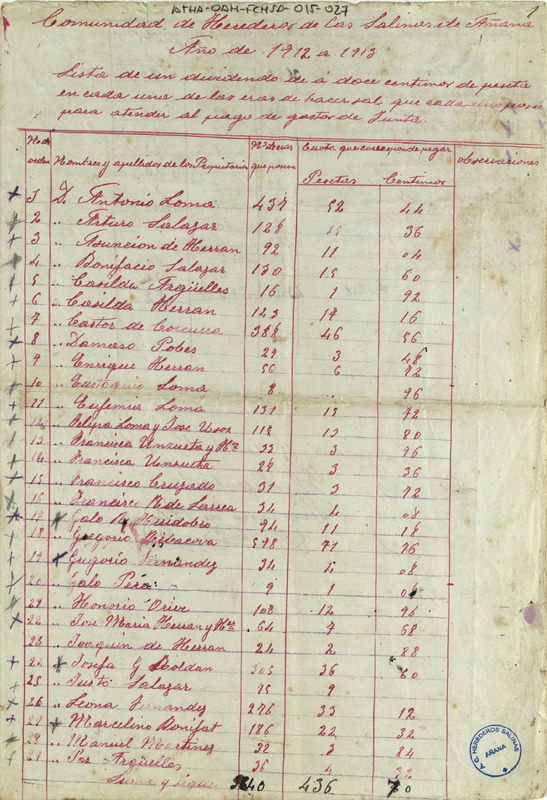 ATHA-DAH-FCHSA-015-027
1
Comunidad de Herederos de Las Salinas de Añana
Año de 1912 a 1913
Lista de un dividendo de á doce centimos de peseta
en cada una de las eras de hacer sal que cada uno posee
para atender al pago de gastos de Junta.
No de orden Nombres y apellidos de los Propietarios No de eras que posee Cuota que corresponde pagar Observaciones
Pesetas Centimos
1 D. Antonio Loma 437 52 44
2 " Arturo Salazar 128 15 36
3 " Asuncion de Herran 92 11 04
4 " Bonifacio Salazar 130 15 60
5 " Casilda Argüelles 16 1 92
6 " Casilda Herran 123 14 76
7 " Castor de 388 46 56
8 " Damaso Pobes 29 3 48
9 " Enrique Herran 56 6 72
10 " Eustaquio Loma 8 .. 96
11 " Eufemia Loma 131 15 72
12 " Felipa Loma y Jose 115 13 80
13 " Francisca Unzueta y Hna 33 3 96
14 " Francisca Unzueta 28 3 36
15 " Francisco Cruzado 31 3 72
16 " Francisco R. de Larrea 34 4 08
17 " Galo R. Huidobro 94 11 28
18 " Gregorio 598 71 76
19 " Gregorio Fernandez 34 4 08
20 " Galo 9 1 08
21 " Honorio Orive 108 12 96
22 " Jose Maria Herran y Hna 64 7 68
23 " Joaquin de Herran 24 2 88
24 " Josefa G. Roldan 305 36 60
25 " Justo Salazar 75 9 ..
26 " Leona Fernandez 276 33 12
27 " Marcelino Bonifat 186 22 32
28 " Manuel Martinez 32 3 84
" Argüelles 36 4 32
Suma y sigue 3640 436 80
A.C. HEREDEROS SALINAS
AÑANA